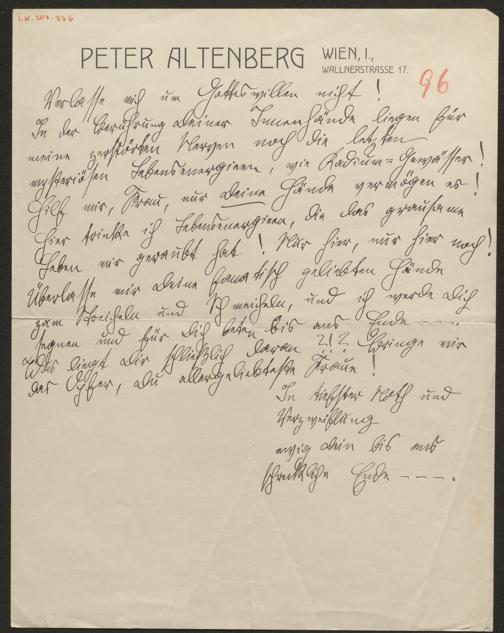 I.N. 207.326
PETER ALTENBERG WIEN, I.,
WALLNERSTRASSE 17.
96
Verlasse mich um Gotteswillen nicht!
In der Berührung Deiner Innenhände liegen für
meine zerstörten Nerven noch die letzten
mysteriösen Lebensenergieen, wie Radium-Gewässer!
Hilf mir, Frau, nur Deine Hände vermögen es!
Hier trinke ich Lebensenergieen, die das grausame
Leben mir geraubt hat! Nur hier, nur hier noch!
Überlasse mir Deine fanatisch geliebten Hände
zum Streicheln und Schmeicheln, und ich werde Dich
segnen und für Dich beten bis ans Ende ----.
Was liegt Dir schließlich daran ?!? Bringe mir
das Opfer, Du allergeliebteste Fraue!
In tiefster Noth und
Verzweiflung
ewig Dein bis ans
schreckliche Ende ---.